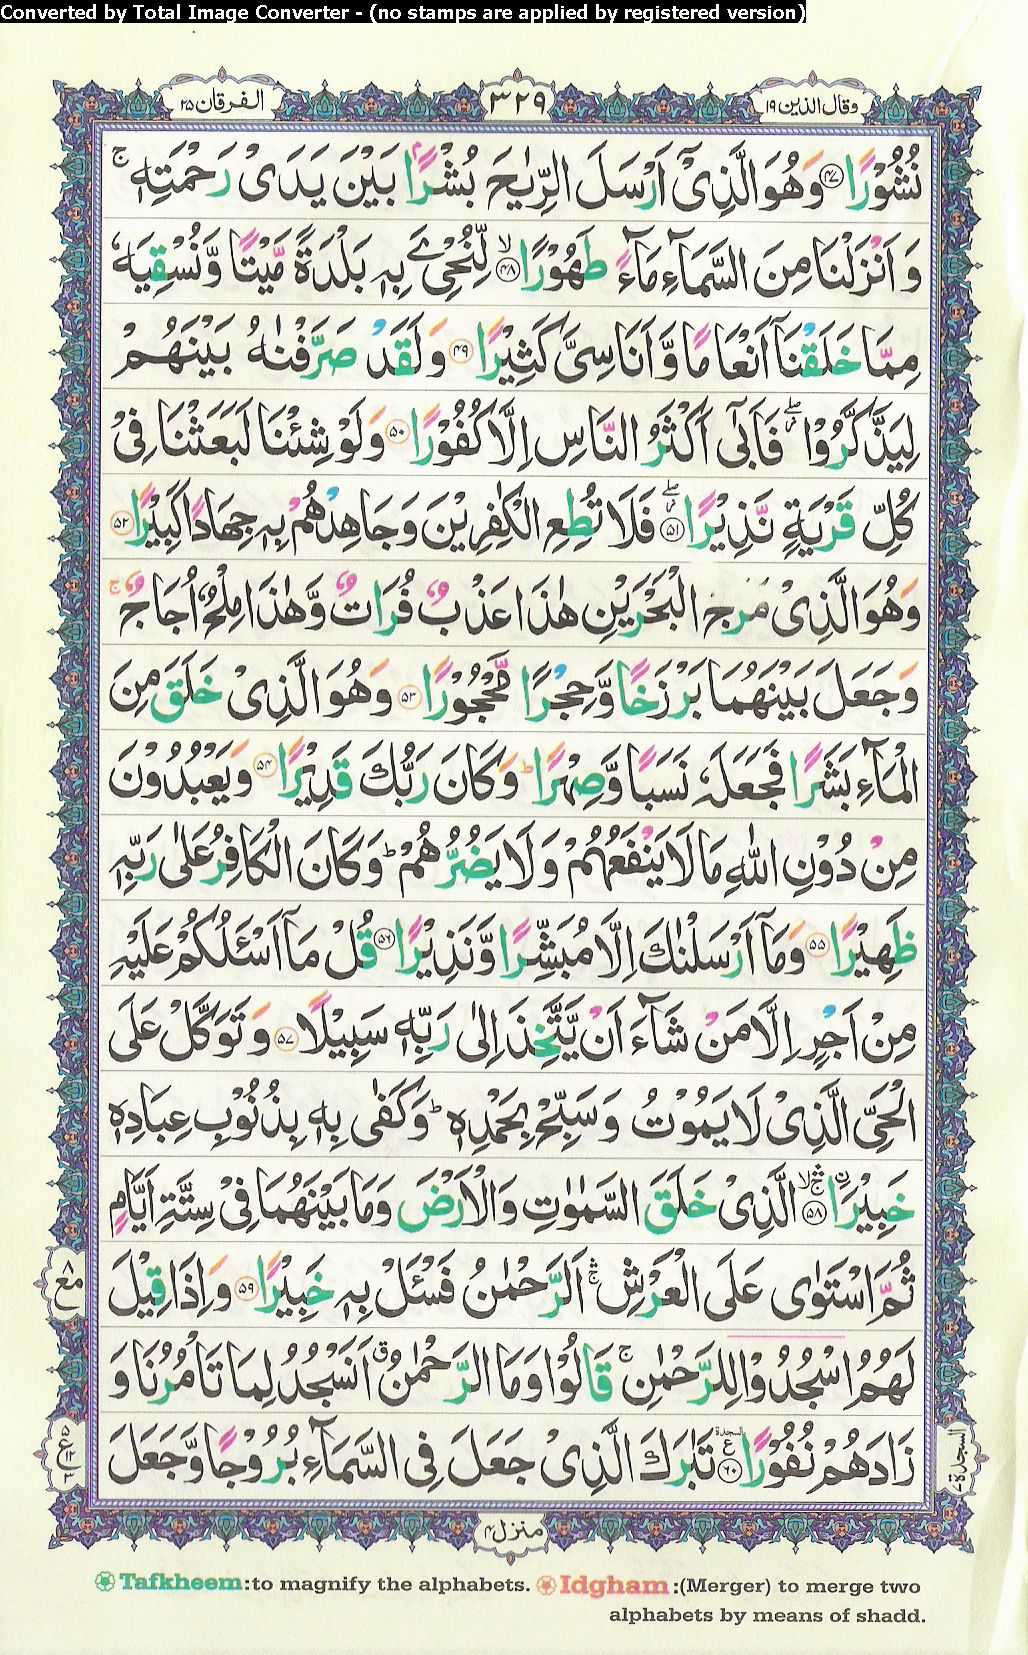 Converted by Total Image Converter - (no stamps are applied by registered version)
وقال الذین ۱۹
۳۲۹
الفرقان ۲۵
نُشُوْرًا ﴿۴۷﴾ وَهُوَ الَّذِیْۤ اَرْسَلَ الرِّیٰحَ بُشْرًۢا بَیْنَ یَدَیْ رَحْمَتِهٖ ۚ
وَاَنْزَلْنَا مِنَ السَّمَآءِ مَآءً طَهُوْرًا ﴿۴۸﴾ۙ لِّنُحْیِۦَ بِهٖ بَلْدَةً مَّیْتًا وَّنُسْقِیَهٗ
مِمَّا خَلَقْنَاۤ اَنْعَامًا وَّاَنَاسِیَّ كَثِیْرًا ﴿۴۹﴾ وَلَقَدْ صَرَّفْنٰهُ بَیْنَهُمْ
لِیَذَّكَّرُوْا ۖ فَاَبٰۤی اَكْثَرُ النَّاسِ اِلَّا كُفُوْرًا ﴿۵۰﴾ وَلَوْ شِئْنَا لَبَعَثْنَا فِیْ
كُلِّ قَرْیَةٍ نَّذِیْرًا ﴿۵۱﴾ۖ فَلَا تُطِعِ الْكٰفِرِیْنَ وَجَاهِدْهُمْ بِهٖ جِهَادًا كَبِیْرًا ﴿۵۲﴾
وَهُوَ الَّذِیْ مَرَجَ الْبَحْرَیْنِ هٰذَا عَذْبٌ فُرَاتٌ وَّهٰذَا مِلْحٌ اُجَاجٌ ۚ
وَجَعَلَ بَیْنَهُمَا بَرْزَخًا وَّحِجْرًا مَّحْجُوْرًا ﴿۵۳﴾ وَهُوَ الَّذِیْ خَلَقَ مِنَ
الْمَآءِ بَشَرًا فَجَعَلَهٗ نَسَبًا وَّصِهْرًا ؕ وَكَانَ رَبُّكَ قَدِیْرًا ﴿۵۴﴾ وَیَعْبُدُوْنَ
مِنْ دُوْنِ اللّٰهِ مَا لَا یَنْفَعُهُمْ وَلَا یَضُرُّهُمْ ؕ وَكَانَ الْكَافِرُ عَلٰی رَبِّهٖ
ظَهِیْرًا ﴿۵۵﴾ وَمَاۤ اَرْسَلْنٰكَ اِلَّا مُبَشِّرًا وَّنَذِیْرًا ﴿۵۶﴾ قُلْ مَاۤ اَسْـَٔلُكُمْ عَلَیْهِ
مِنْ اَجْرٍ اِلَّا مَنْ شَآءَ اَنْ یَّتَّخِذَ اِلٰی رَبِّهٖ سَبِیْلًا ﴿۵۷﴾ وَتَوَكَّلْ عَلَی
الْحَیِّ الَّذِیْ لَا یَمُوْتُ وَسَبِّحْ بِحَمْدِهٖ ؕ وَكَفٰی بِهٖ بِذُنُوْبِ عِبَادِهٖ
خَبِیْرًا ﴿۵۸﴾ۙۛ الَّذِیْ خَلَقَ السَّمٰوٰتِ وَالْاَرْضَ وَمَا بَیْنَهُمَا فِیْ سِتَّةِ اَیَّامٍ
ثُمَّ اسْتَوٰی عَلَی الْعَرْشِ ۛ اَلرَّحْمٰنُ فَسْـَٔلْ بِهٖ خَبِیْرًا ﴿۵۹﴾ وَاِذَا قِیْلَ
لَهُمُ اسْجُدُوْا لِلرَّحْمٰنِ ۚ قَالُوْا وَمَا الرَّحْمٰنُ ۗ اَنَسْجُدُ لِمَا تَاْمُرُنَا وَ
زَادَهُمْ نُفُوْرًا ﴿۶۰﴾ تَبٰرَكَ الَّذِیْ جَعَلَ فِی السَّمَآءِ بُرُوْجًا وَّجَعَلَ
۸ مع
۵ ع ۱۲ ۳
السجدة ۷
منزل ۴
Tafkheem:to magnify the alphabets. Idgham:(Merger) to merge two
alphabets by means of shadd.